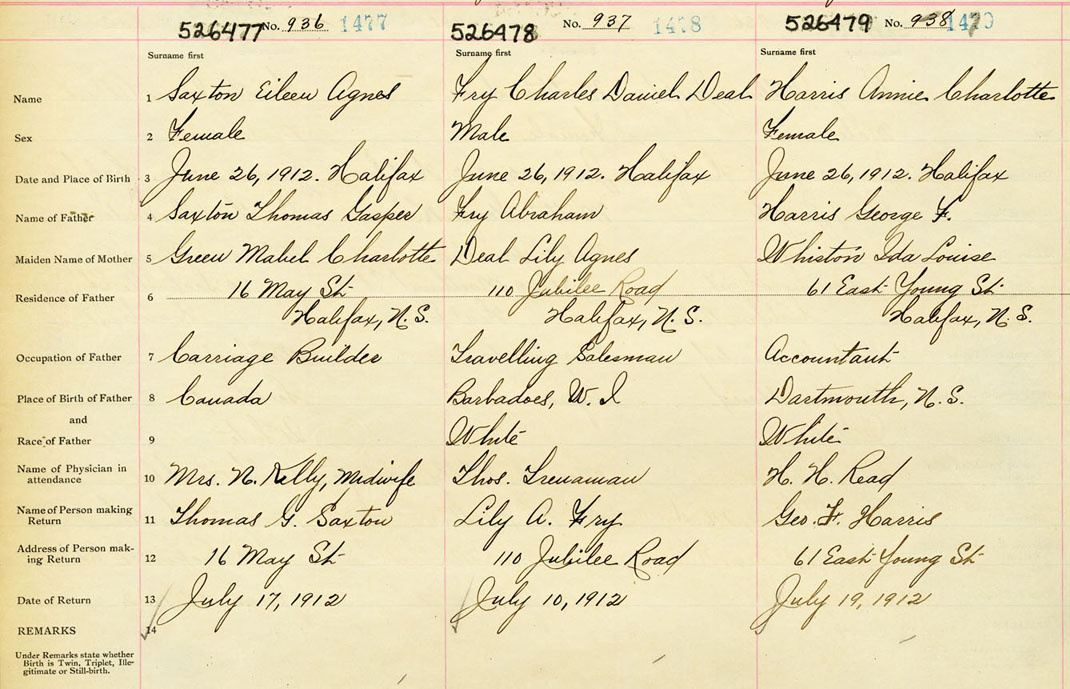 526477 No. 936 1477 526478 No. 937 1478 526479 No. 938 1479
Surname first Surname first Surname first
Name 1 Saxton Eileen Agnes Fry Charles Daniel Deal Harris Annie Charlotte
Sex 2 Female Male Female
Date and Place of Birth 3 June 26, 1912. Halifax June 26, 1912. Halifax June 26, 1912. Halifax
Name of Father 4 Saxton Thomas Gasper Fry Abraham Harris George F.
Maiden Name of Mother 5 Green Mabel Charlotte Deal Lily Agnes Whiston Ida Louise
Residence of Father 6 16 May St 110 Jubilee Road 61 East Young St
Halifax, N.S. Halifax, N.S. Halifax, N.S.
Occupation of Father 7 Carriage Builder Travelling Salesman Accountant
Place of Birth of Father 8 Canada Barbadoes, W. I Dartmouth, N.S.
and
Race of Father 9 White White
Name of Physician in
attendance 10 Mrs. N. Kelly, Midwife Thos. Trenaman H. H. Read
Name of Person making
Return 11 Thomas G. Saxton Lily A. Fry Geo. F. Harris
Address of Person mak-
ing Return 12 16 May St 110 Jubilee Road 61 East Young St
Date of Return 13 July 17, 1912 July 10, 1912 July 19, 1912
REMARKS 14
Under Remarks state whether
Birth is Twin, Triplet, Ille-
gitimate or Still-birth.